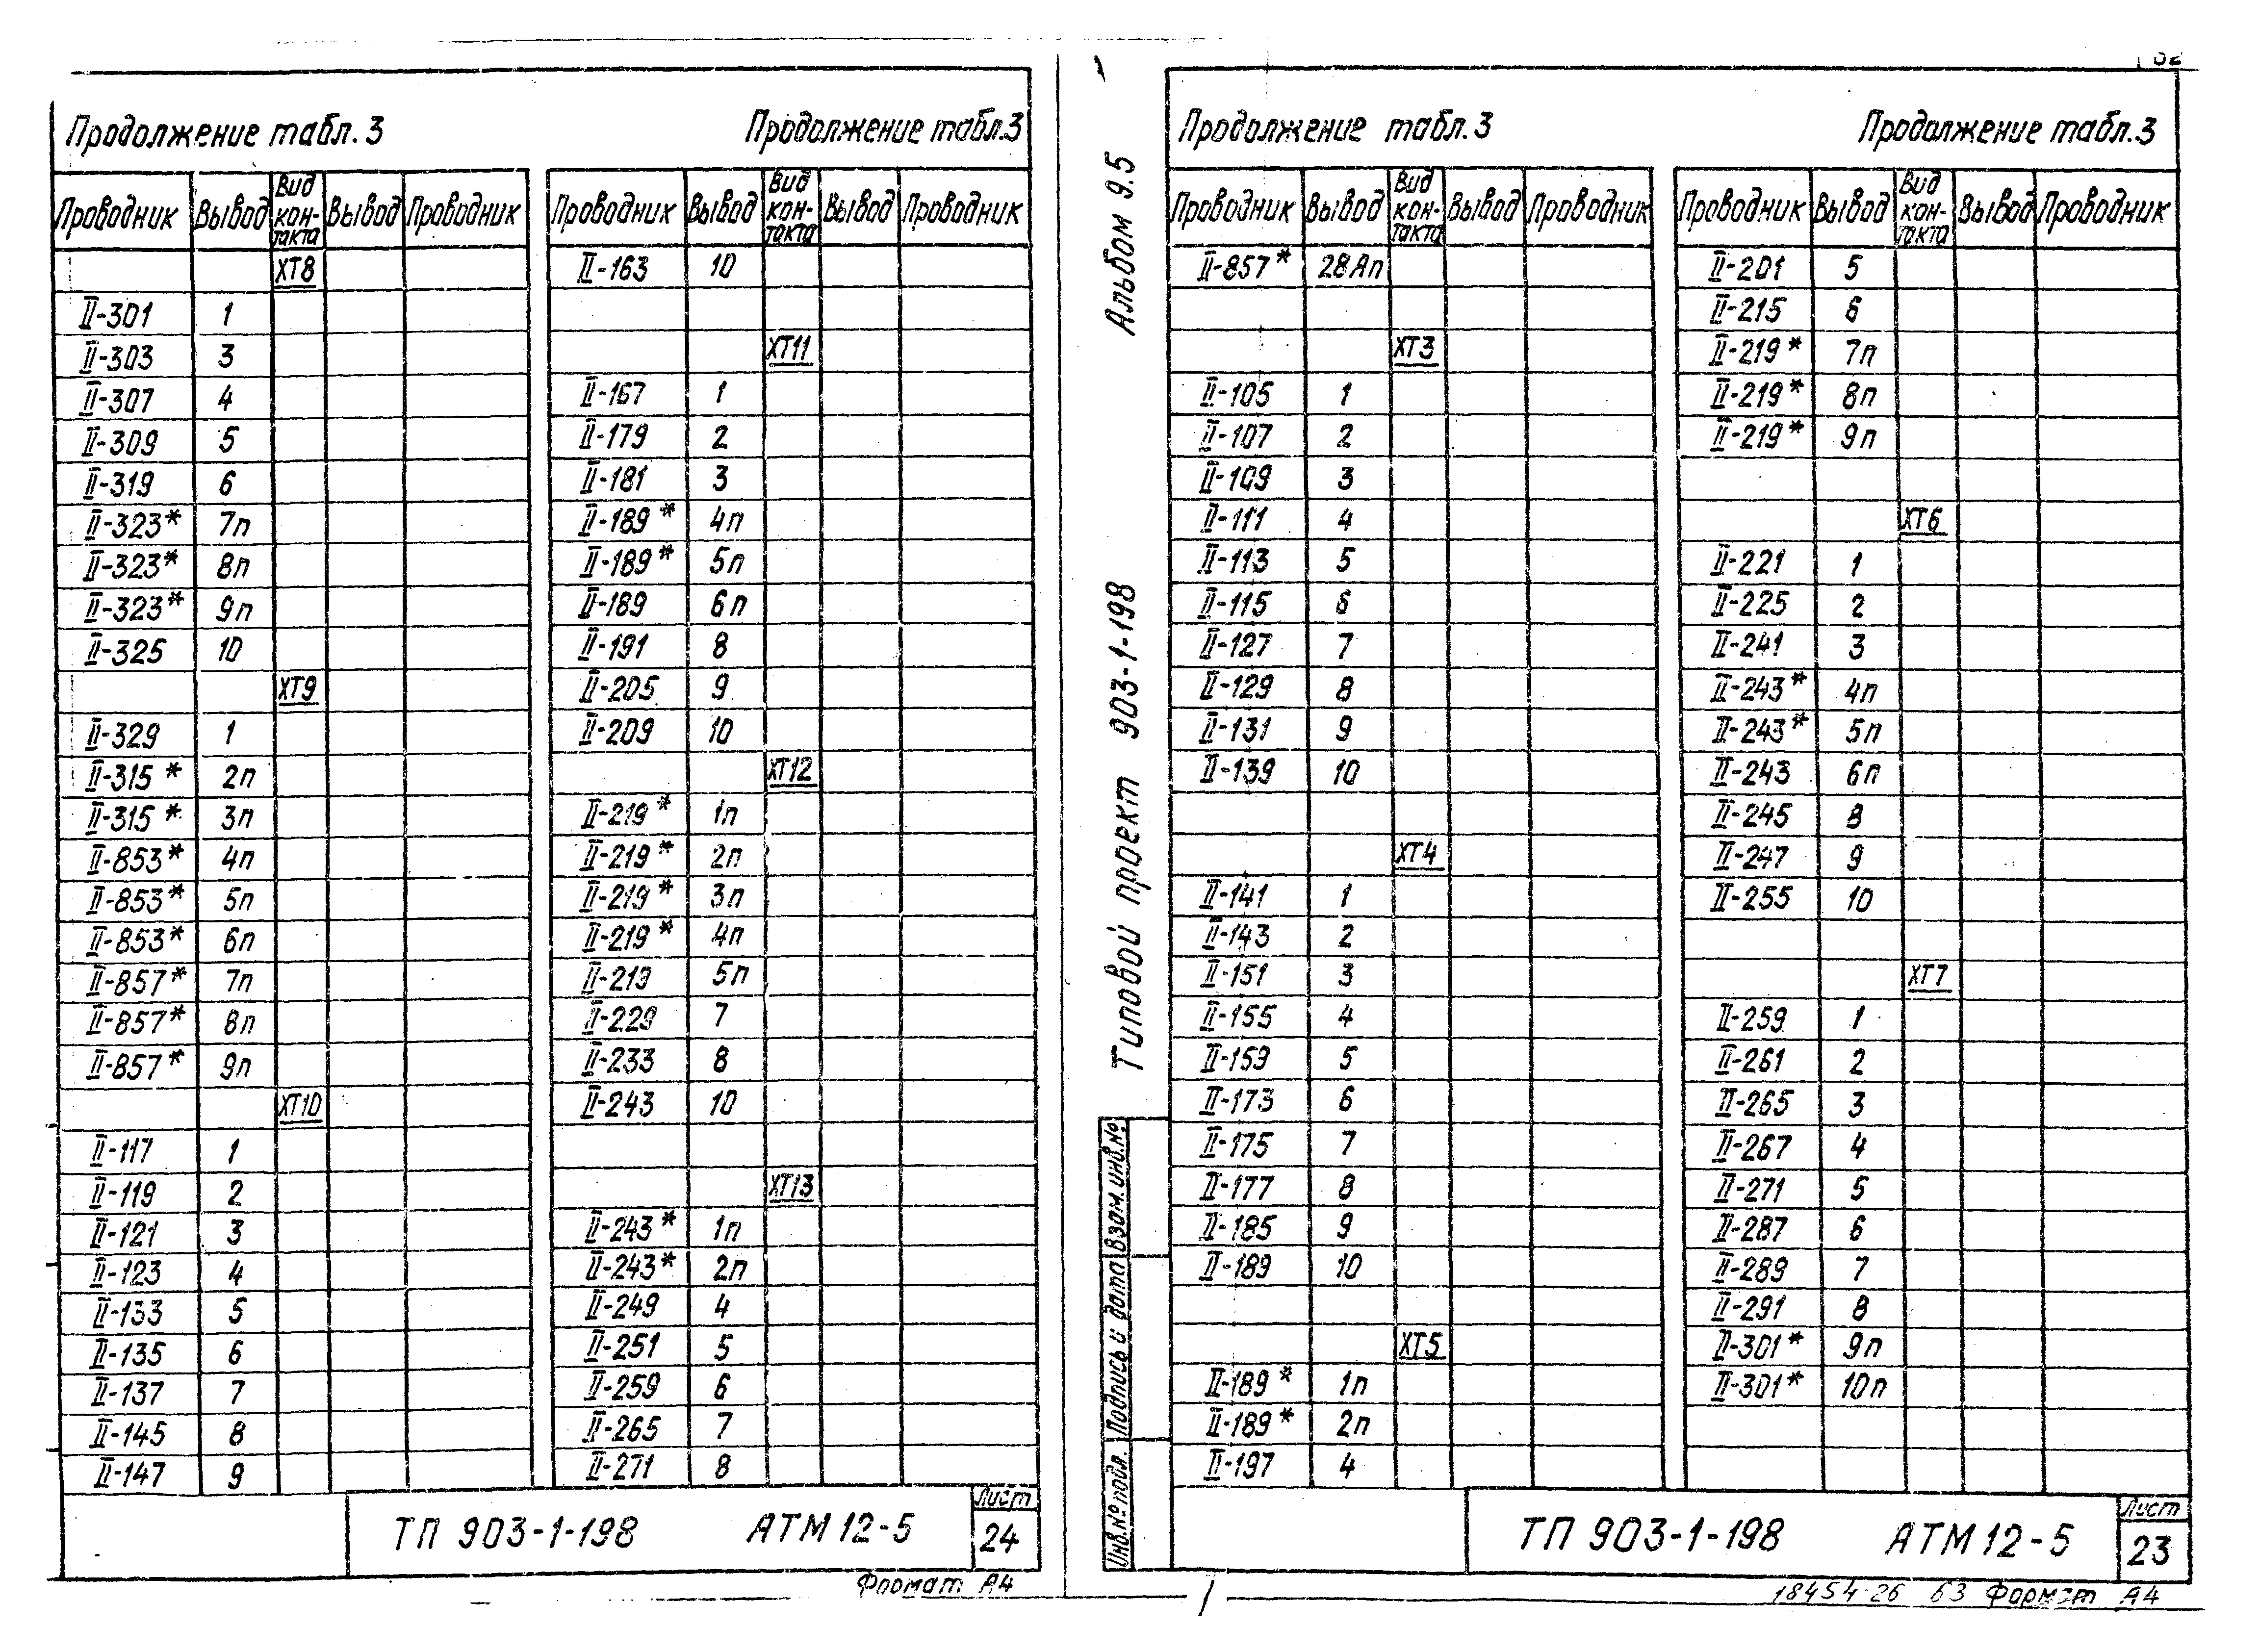 Продолжение табл. 3
Проводник Вывод Вид контакта Вывод Проводник
ХТ8
II-301 1
II-303 3
II-307 4
II-309 5
II-319 6
II-323* 7п
II-323* 8п
II-323* 9п
II-325 10
ХТ9
II-329 1
II-315* 2п
II-315* 3п
II-853* 4п
II-853* 5п
II-853* 6п
II-857* 7п
II-857* 8п
II-857* 9п
ХТ10
II-117 1
II-119 2
II-121 3
II-123 4
II-133 5
II-135 6
II-137 7
II-145 8
II-147 9
Продолжение табл.3
Проводник Вывод Вид контакта Вывод Проводник
II-163 10
ХТ11
II-167 1
II-179 2
II-181 3
II-189* 4п
II-189* 5п
II-189 6п
II-191 8
II-205 9
II-209 10
ХТ12
II-219* 1п
II-219* 2п
II-219* 3п
II-219* 4п
II-219 5п
II-229 7
II-233 8
II-243 10
ХТ13
II-243* 1п
II-243* 2п
II-249 4
II-251 5
II-259 6
II-265 7
II-271 8
ТП 903-1-198 АТМ 12-5
Лист
24
Формат А4
Альбом 9.5
Типовой проект 903-1-198
Взам. инв.№
Подпись и дата
Инв.№ подл.
Продолжение табл.3
Проводник Вывод Вид контакта Вывод Проводник
II-857* 28Ап
ХТ3
II-105 1
II-107 2
II-109 3
II-111 4
II-113 5
II-115 6
II-127 7
II-129 8
II-131 9
II-139 10
ХТ4
II-141 1
II-143 2
II-151 3
II-155 4
II-159 5
II-173 6
II-175 7
II-177 8
II-185 9
II-189 10
ХТ5
II-189* 1п
II-189* 2п
II-197 4
Продолжение табл.3
Проводник Вывод Вид контакта Вывод Проводник
II-201 5
II-215 6
II-219* 7п
II-219* 8п
II-219* 9п
ХТ6
II-221 1
II-225 2
II-241 3
II-243* 4п
II-243* 5п
II-243 6п
II-245 8
II-247 9
II-255 10
ХТ7
II-259 1
II-261 2
II-265 3
II-267 4
II-271 5
II-287 6
II-289 7
II-291 8
II-301* 9п
II-301* 10п
ТП 903-1-198 АТМ 12-5
Лист
23
18454-26 63 Формат А4